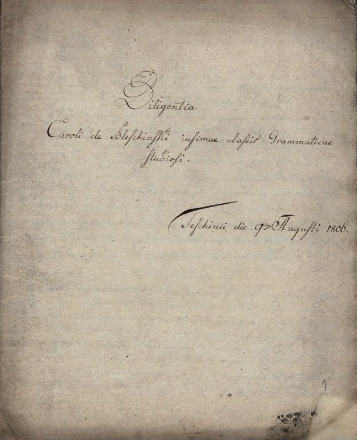 Diligentia
Caroli de Bleschinskii infimae classis Grammaticae
studiosi.
Teschinii die 9 Augusti 1806.
1